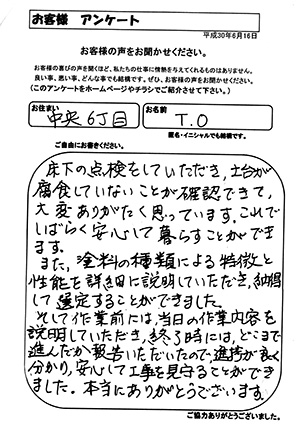 お客様 アンケート
平成30年6月16日
お客様の声をお聞かせください。
お客様の喜びの声を聞くほど、私たちの仕事に情熱を与えてくれるものはありません。
良い事、悪い事、どんな事でも結構です。ぜひ、お客様の声をお聞かせください。
(このアンケートをホームページやチラシでご紹介させて下さい。)
お住まい
中央6丁目
お名前
T.O
匿名・イニシャルでも結構です。
ご自由にお書きください。
床下の点検をしていただき、土台が
腐食していないことが確認できて、
大変ありがたく思っています。これで
しばらく安心して暮らすことができ
ます。
また、塗料の種類による特徴と
性能を詳細に説明していただき、納得
して選定することができました。
そして作業前には、当日の作業内容を
説明していただき、終了時には、どこまで
進んだか報告いただいたので、進捗が良く
分かり、安心して工事を見守ることができ
ました。本当にありがとうございます。
ご協力ありがとうございました。